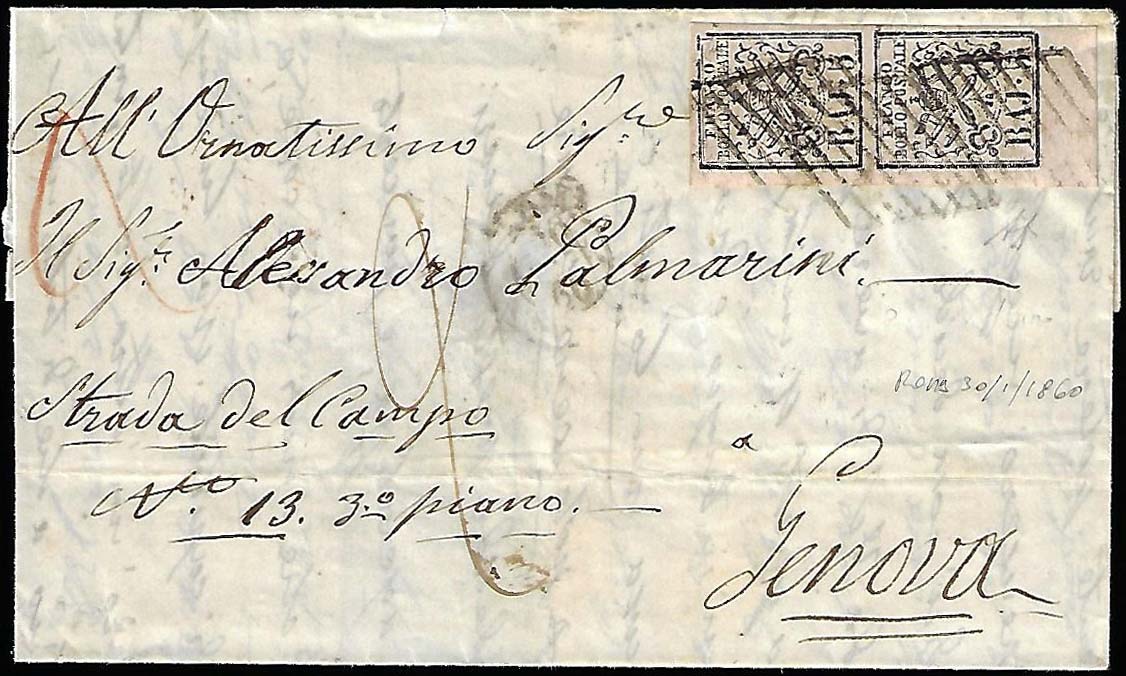 FRANCO
BOLLO POSTALE
BAJ. 8
FRANCO
BOLLO POSTALE
BAJ. 8
All' Ornatissimo Sig.re
Il Sig.r Alessandro Palmarini.
Roma 30/1/1860
Strada del Campo
a
N.o 13. 3.o piano.
Genova